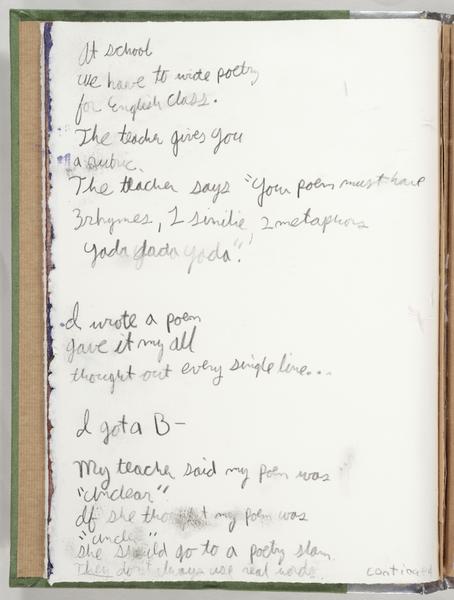 At school
we have to write poetry
for English class.
The teacher gives you
a rubric.
The teacher says "your poem must have
3 rhymes, 1 similie, 2 metaphors
yada yada yada."
I wrote a poem
gave it my all
thought out every single line...
I got a B-
My teacher said my poem was
"unclear"
If she thought my poem was
she should go to a poetry slam.
They don't always use real words.
continued